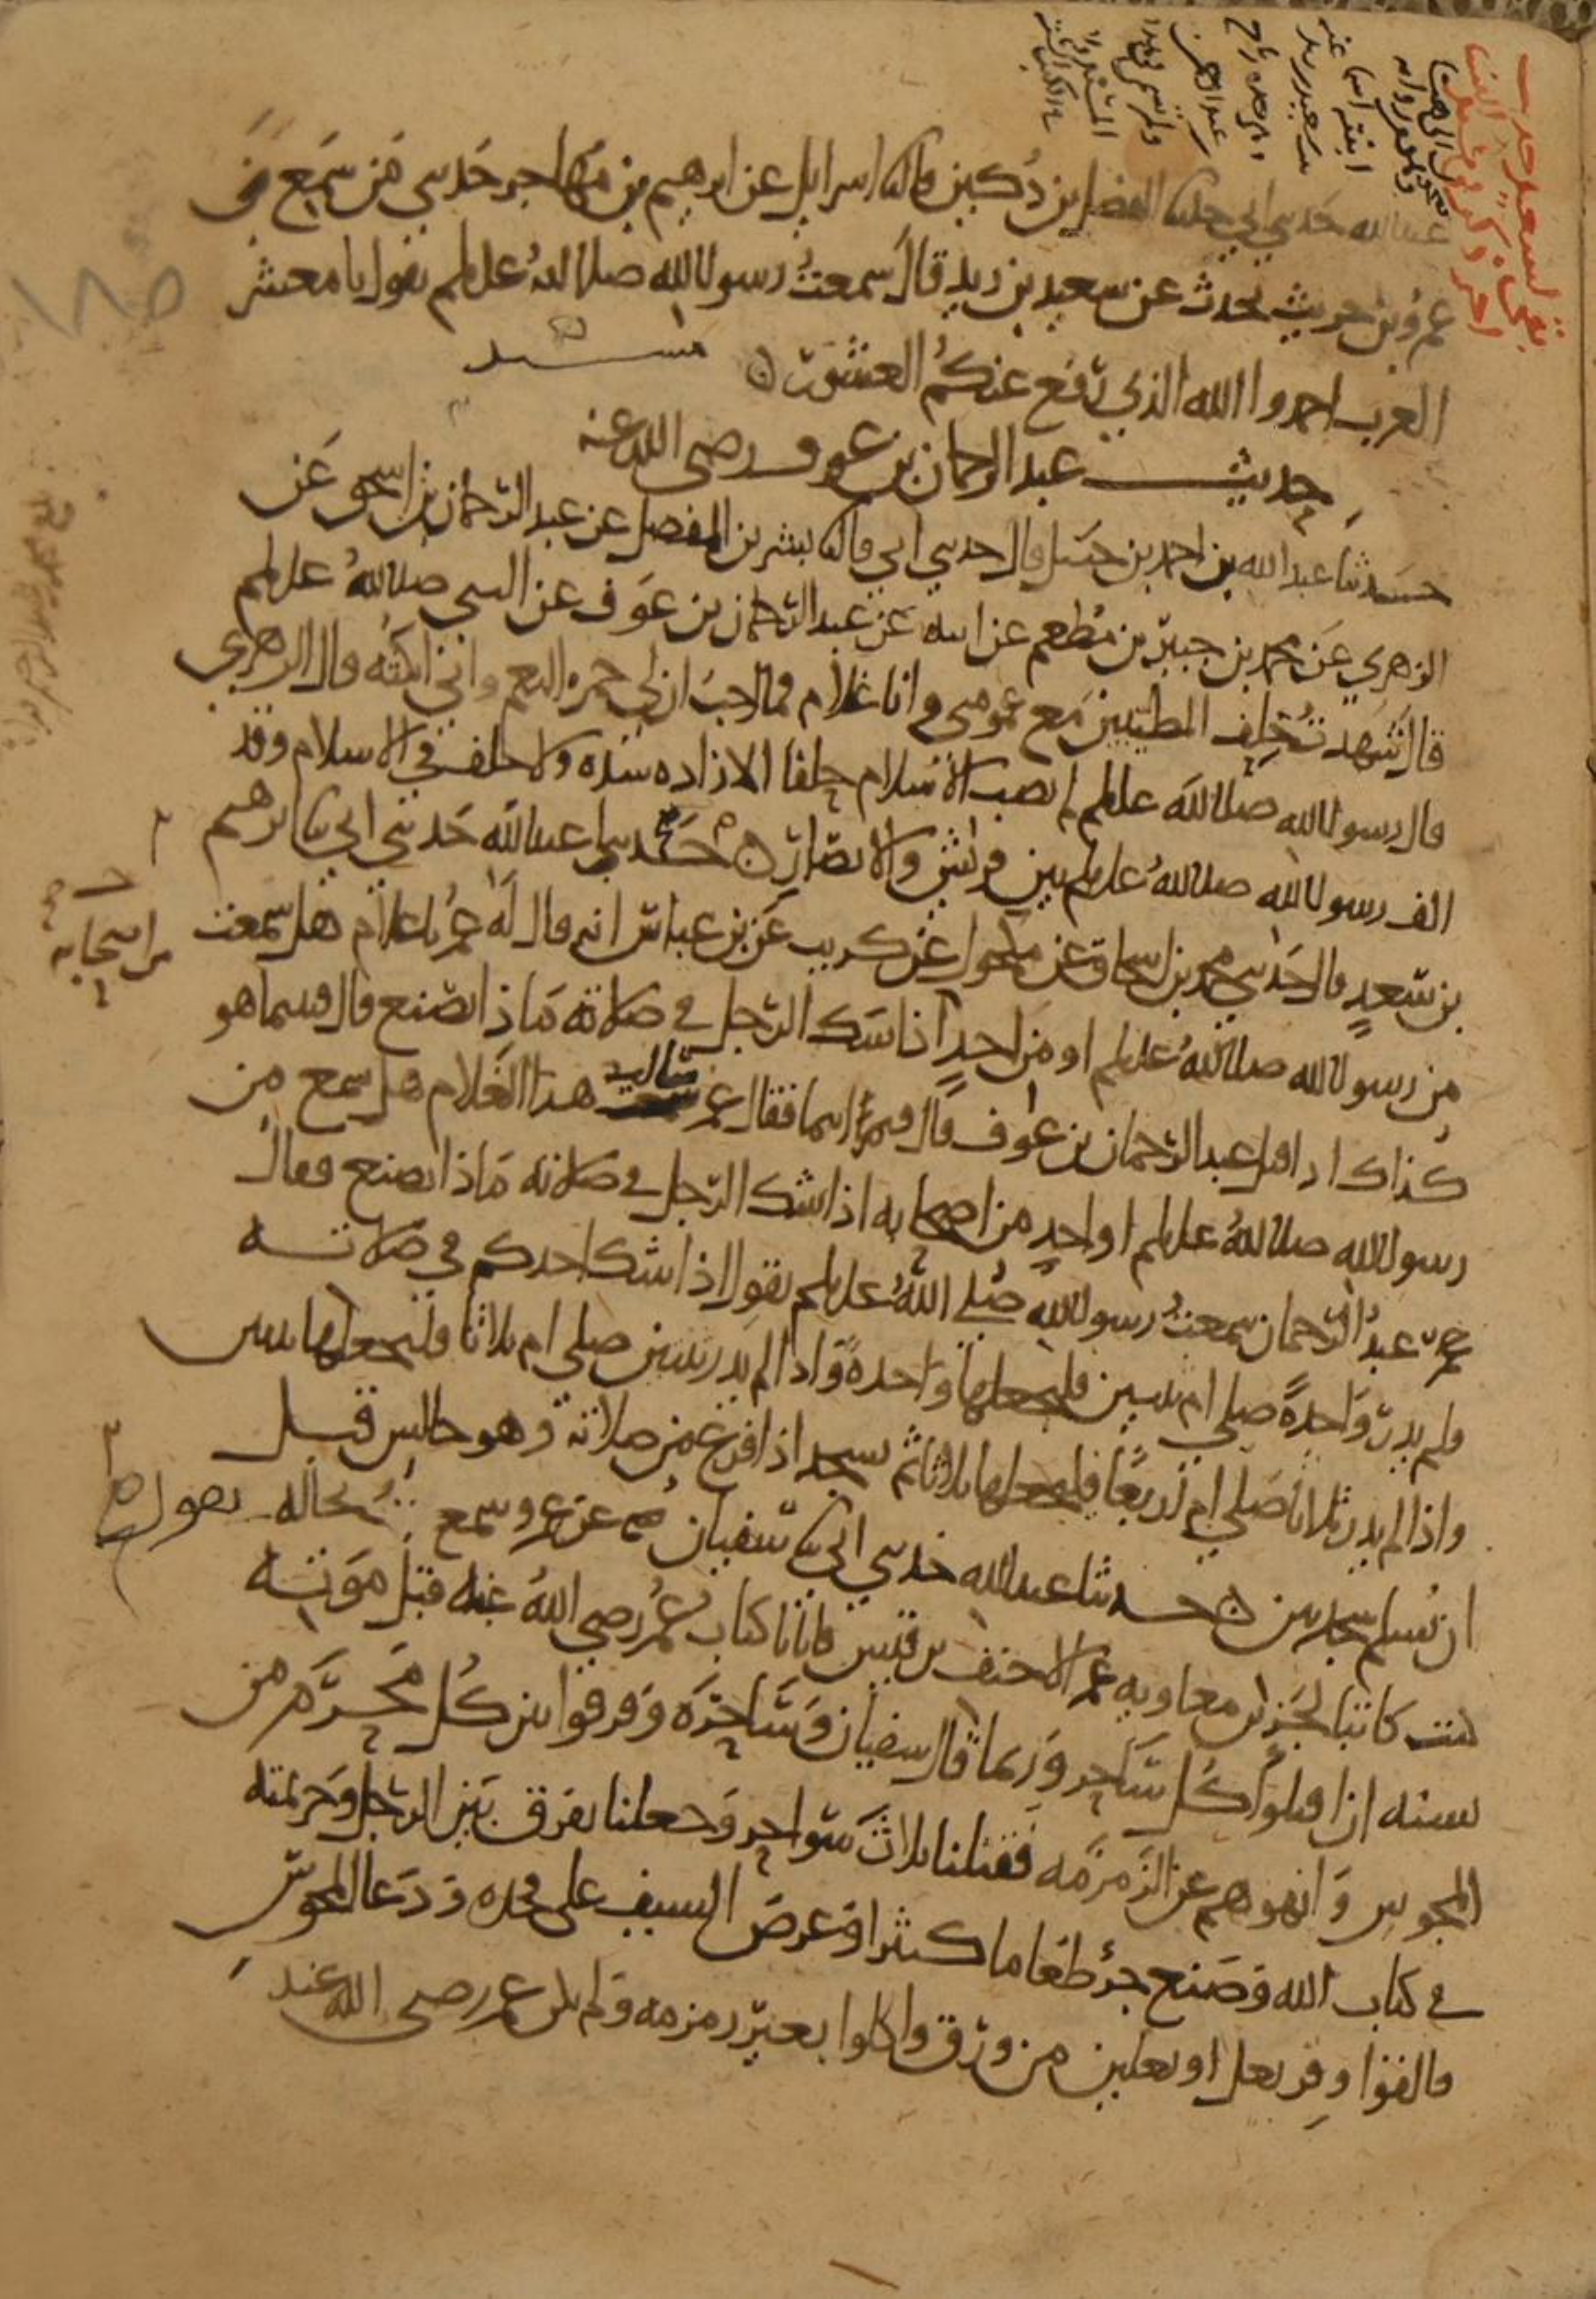 عبد الله حدثني ابي حدثنا الفضل بن دكين قال ثنا اسرايل عن ابرهيم بن مهاجر حدثني من سمع من
عمرو بن حريث يحدث عن سعيد بن زيد قال سمعت رسول الله صلى الله عليه وسلم يقول يا معشر
العرب احمدوا الله الذي رفع عنكم العشور
حديث عبد الرحمان بن عوف رضي الله عنه
حدثنا عبد الله بن احمد بن حنبل قال حدثني ابي قال ثنا بشر بن المفضل عن عبد الرحمان بن اسحق عن
الزهري عن محمد بن جبير بن مطعم عن ابيه عن عبد الرحمان بن عوف عن النبي صلى الله عليه وسلم
قال شهدت حلف المطيبين مع عمومتي وانا غلام فما احب ان لي حمر النعم واني انكثه قال الزهري
قال رسول الله صلى الله عليه وسلم لم يصب الاسلام حلفا الا زاده شدة ولا حلف في الاسلام وقد
الف رسول الله صلى الله عليه وسلم بين قريش والانصار حدثنا عبد الله حدثني ابي ثنا ابرهيم
بن سعد قال حدثني محمد بن اسحاق عن مكحول عن كريب عن بن عباس انه قال له عمر يا غلام هل سمعت
من رسول الله صلى الله عليه وسلم او من احد اذا شك الرجل في صلاته ماذا يصنع قال فبينما هو
كذلك اذ اقبل عبد الرحمان بن عوف قال فيم انتما فقال عمر سالت هذا الغلام هل سمع من
رسول الله صلى الله عليه وسلم او احد من اصحابه اذا شك الرجل في صلاته ماذا يصنع فقال
عبد الرحمان سمعت رسول الله صلى الله عليه وسلم يقول اذا شك احدكم في صلاته
ولم يدر واحدة صلى ام ثنتين فليجعلها واحدة واذا لم يدر ثنتين صلى ام ثلاثا فليجعلها ثنتين
واذا لم يدر ثلاثا صلى ام اربعا فليجعلها ثلاثا ثم يسجد اذا فرغ من صلاته وهو جالس قبل
ان يسلم سجدتين حدثنا عبد الله حدثني ابي ثنا سفيان عن عمرو سمع بجاله يقول
كنت كاتبا لجزء بن معاويه عم الاحنف بن قيس فاتانا كتاب عمر رضي الله عنه قبل موته
بسنه ان اقتلوا كل ساحر وربما قال سفيان وساحره وفرقوا بين كل محرم من
المجوس وانهوهم عن الزمزمه فقتلنا ثلاث سواحر وجعلنا نفرق بين الرجل وحريمته
في كتاب الله وصنع جزء طعاما كثيرا وعرض السيف على فخذه ودعا المجوس
فالقوا وقر بغل او بغلين من ورق واكلوا بغير زمزمه ولم يكن عمر رضي الله عنه
من اصحابه
١٨٥